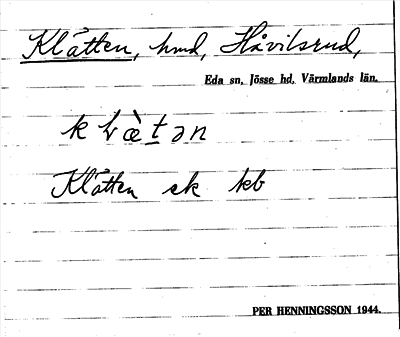 Klätten, hmd, Håvilsrud,
Eda sn, Jösse hd, Värmlands län.
Klätten ek kb
PER HENNINGSSON 1944.